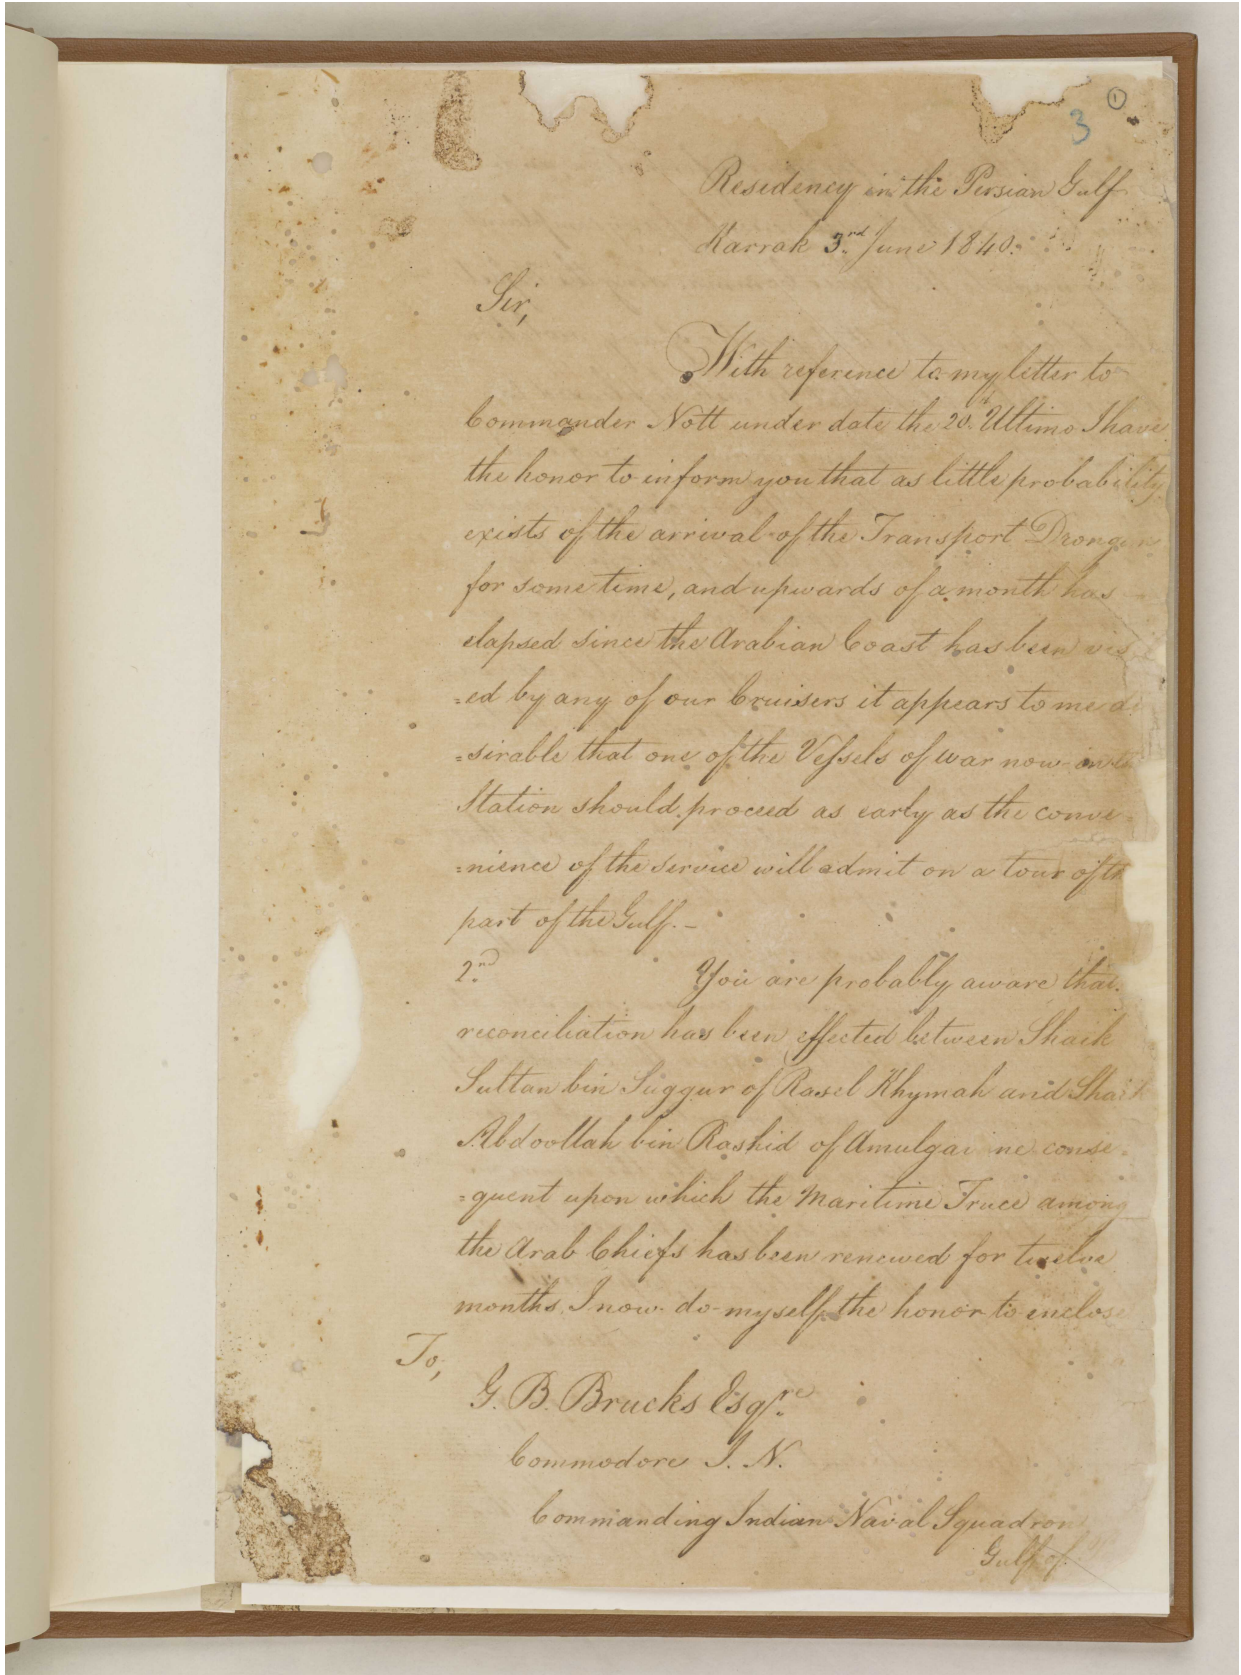 3
1
Residency in the Persian Gulf
Karrak 3.rd June 1840.
Sir,
With reference to my letter to
Commander Nott under date the 20.th Ultimo I have
the honor to inform you that as little probability
exists of the arrival of the Transport
for some time, and upwards of a month has
elapsed since the Arabian Coast has been
=ed by any of our Cruisers it appears to me
=sirable that one of the Vessels of war now on
Station should proceed as early as the conve=
=nience of the service will admit on a tour of
part of the Gulf. –
2.nd You are probably aware that
reconciliation has been effected between Shaik
Sultan bin Suggur of Rasel Khymah and Shaik
Abdoollah bin Rashid of Amulgavine conse=
=quent upon which the Maritime Truce among
the Arab Chiefs has been renewed for twelve
months. I now do myself the honor to enclose
To,
G. B. Brucks Esqr.e
Commodore I. N.
Commanding Indian Naval Squadron
Gulf of